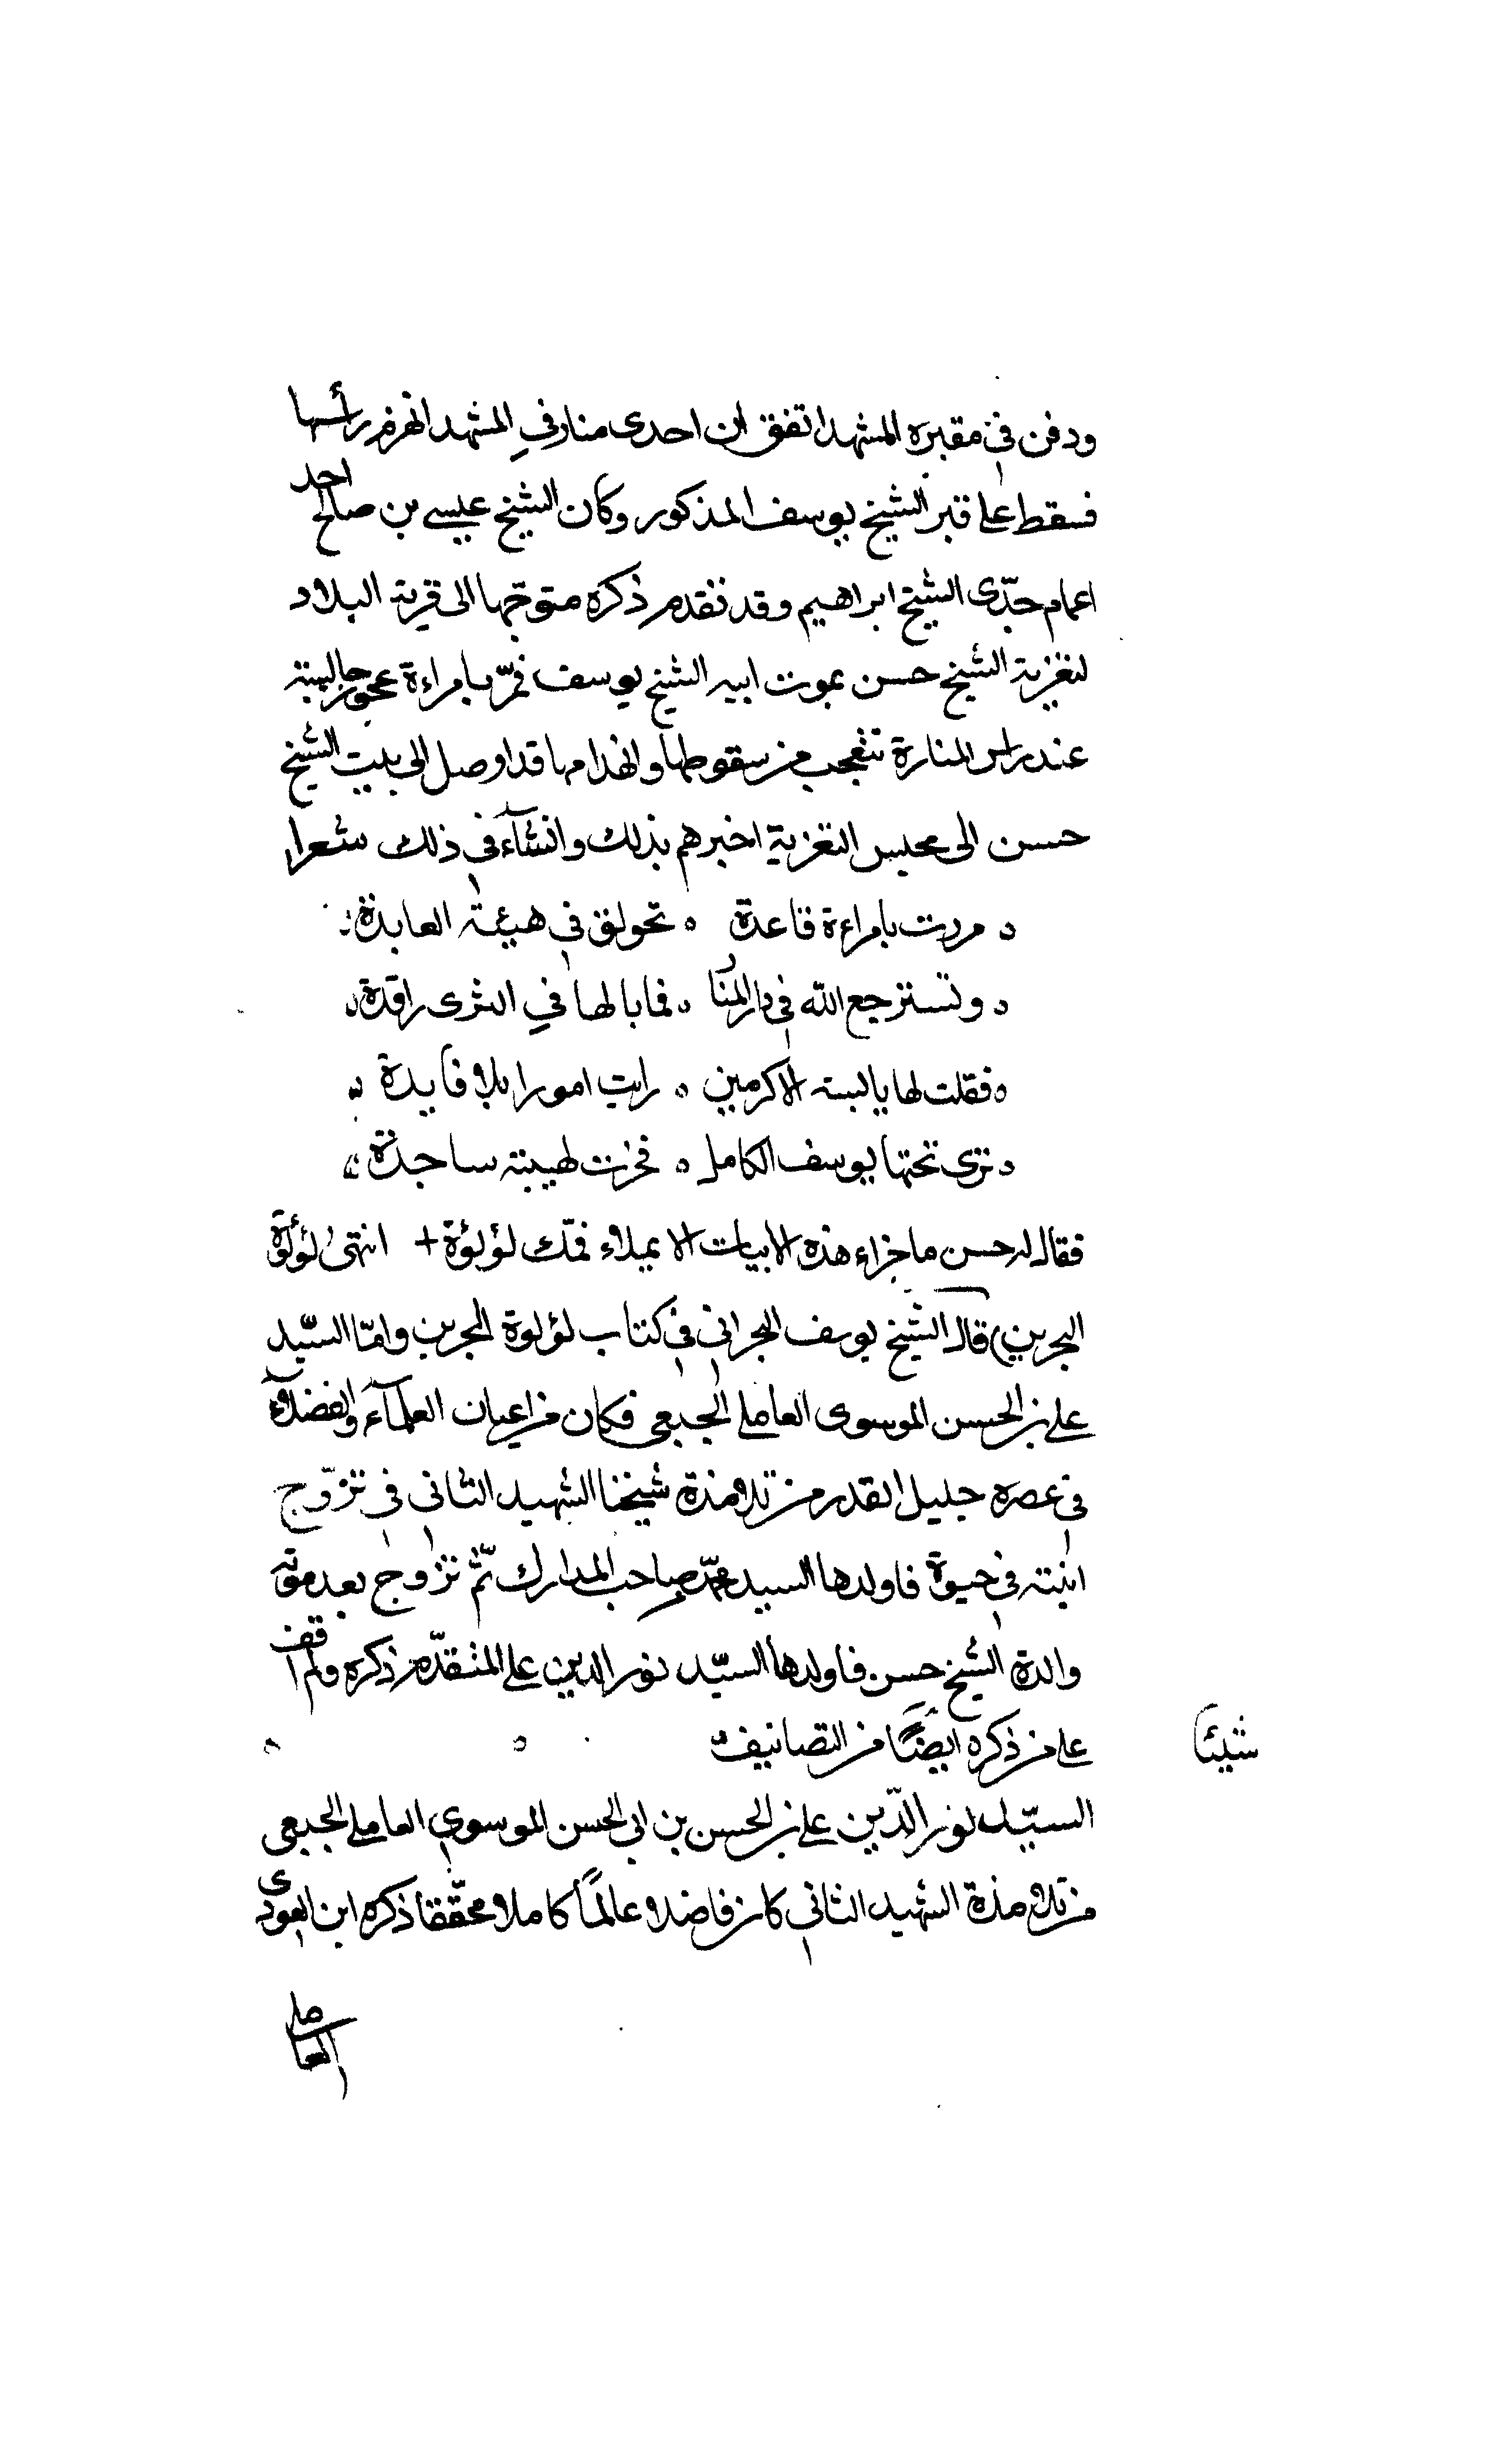 ودفن في مقبره المشهد اتفق ان احدى منارفي المشهد انهزم راسها
فسقط على قبر الشيخ يوسف المذكور وكان الشيخ عيسى بن صالح احد
اعمام جدّى الشيخ ابراهيم وقد تقدم ذكره متوجّها الى قرية البلاد
لتعزية الشيخ حسن بموت ابيه الشيخ يوسف فمرّ بامراءة عجوز جالسة
عند راس المنارة تتعجب من سقوطها وانهدامها قد اوصل الى بيت الشيخ
حسن الى مجلس التعزية اخبرهم بذلك وانشآء في ذلك شعرا
مررت بامراءة قاعدة ٥ تحولق في هيئة العابدة
وتسترجع الله في دار المنا ٥ فما بالها في الثرى راقدة
فقلت لها يا ابنة الاكرمين ٥ رايت امورا بلا فايدة
ترى تحتها يوسف الكامل ٥ فخرت لهيبته ساجدة
فقال له حسن ما جزاء هذه الابيات الا يملاء فمك لؤلؤة + انتهى لؤلؤة
البحرين) قال الشيخ يوسف البحراني في كتاب لؤلوة البحرين وامّا السيّد
على بن الحسن الموسوى العاملي الجبعي فكان من اعيان العلمآء والفضلآء
في عصره جليل القدر من تلامذة شيخنا الشهيد الثاني في تزوّج
ابنته في حيوة فاولدها السيد محمّد صاحب المدارك ثمّ تزوج بعد موته
والدة الشيخ حسن فاولدها السيّد نور الدين على المتقدّم ذكره ولم اقف
على من ذكره ايضًا من التصانيف
شيئا
السيّد نور الدّين على بن الحسن بن ابي الحسن الموسوي العاملي الجبعي
من تلامذة الشهيد الثاني كان فاضلا عالمًا كاملا محقّقا ذكره ابن العودي
العاملي